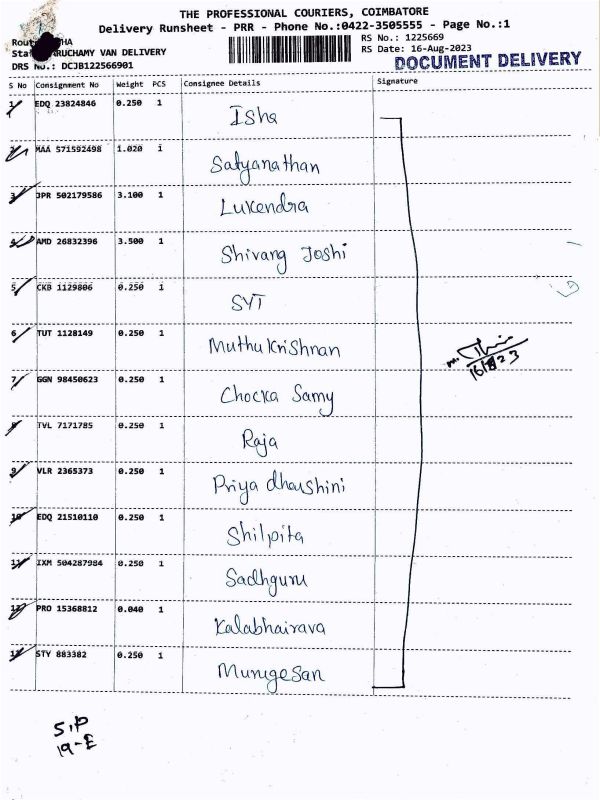 THE PROFESSIONAL COURIERS, COIMBATORE
Delivery Runsheet - PRR - Phone No.:0422-3505555 - Page No.:1
RS No.: 1225669
RS Date: 16-Aug-2023
DRS No.: DCJB122566901
VAN DELIVERY
DOCUMENT DELIVERY
S No Consignment No Weight PCS Consignee Details Signature
1 EDQ 23824846 0.250 1 Isha
2 MAA 571592498 1.020 1 Satyanathan
3 JPR 502179586 3.100 1 Lukendra
4 AMD 26832396 3.500 1 Shivang Joshi
5 CKB 1129806 0.250 1 SYT
6 TUT 1128149 0.250 1 Muthu Krishnan
7 GGN 98450623 0.250 1 Chocka Samy
8 TVL 7171785 0.250 1 Raja
9 VLR 2365373 0.250 1 Priya dharshini
10 EDQ 21510110 0.250 1 Shilpita
11 IXM 504287984 0.250 1 Sadhguru
12 PRO 15368812 0.040 1 Kalabhairava
13 STY 883382 0.250 1 Murugesan
16/8/23
S.P
19-E